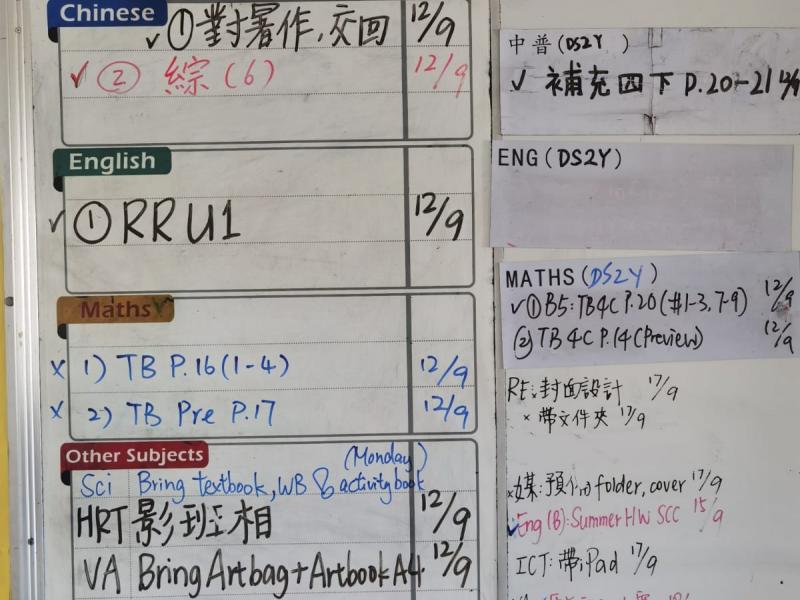 Chinese
✓ ① 對暑作，交回 12/9
✓ ② 綜(6) 12/9
English
✓ ① RR U1 12/9
Maths
x 1) TB P.16 (1-4) 12/9
x 2) TB Pre P.17 12/9
Other Subjects
(Monday)
Sci Bring textbook, WB & activity book
HRT 影班相 12/9
VA Bring Artbag + Artbook A4 12/9
中普 (DS2Y)
✓ 補充四下 P.20-21 12/9
ENG (DS2Y)
MATHS (DS2Y)
✓ ① B5: TB4C P.20 (#1-3, 7-9) 12/9
② TB 4C P.14 (Preview) 12/9
RE: 封面設計 17/9
x 帶文件夾 17/9
folder, cover 17/9
✓ Eng (B): Summer HW SCC 15/9
ICT: 帶iPad 17/9